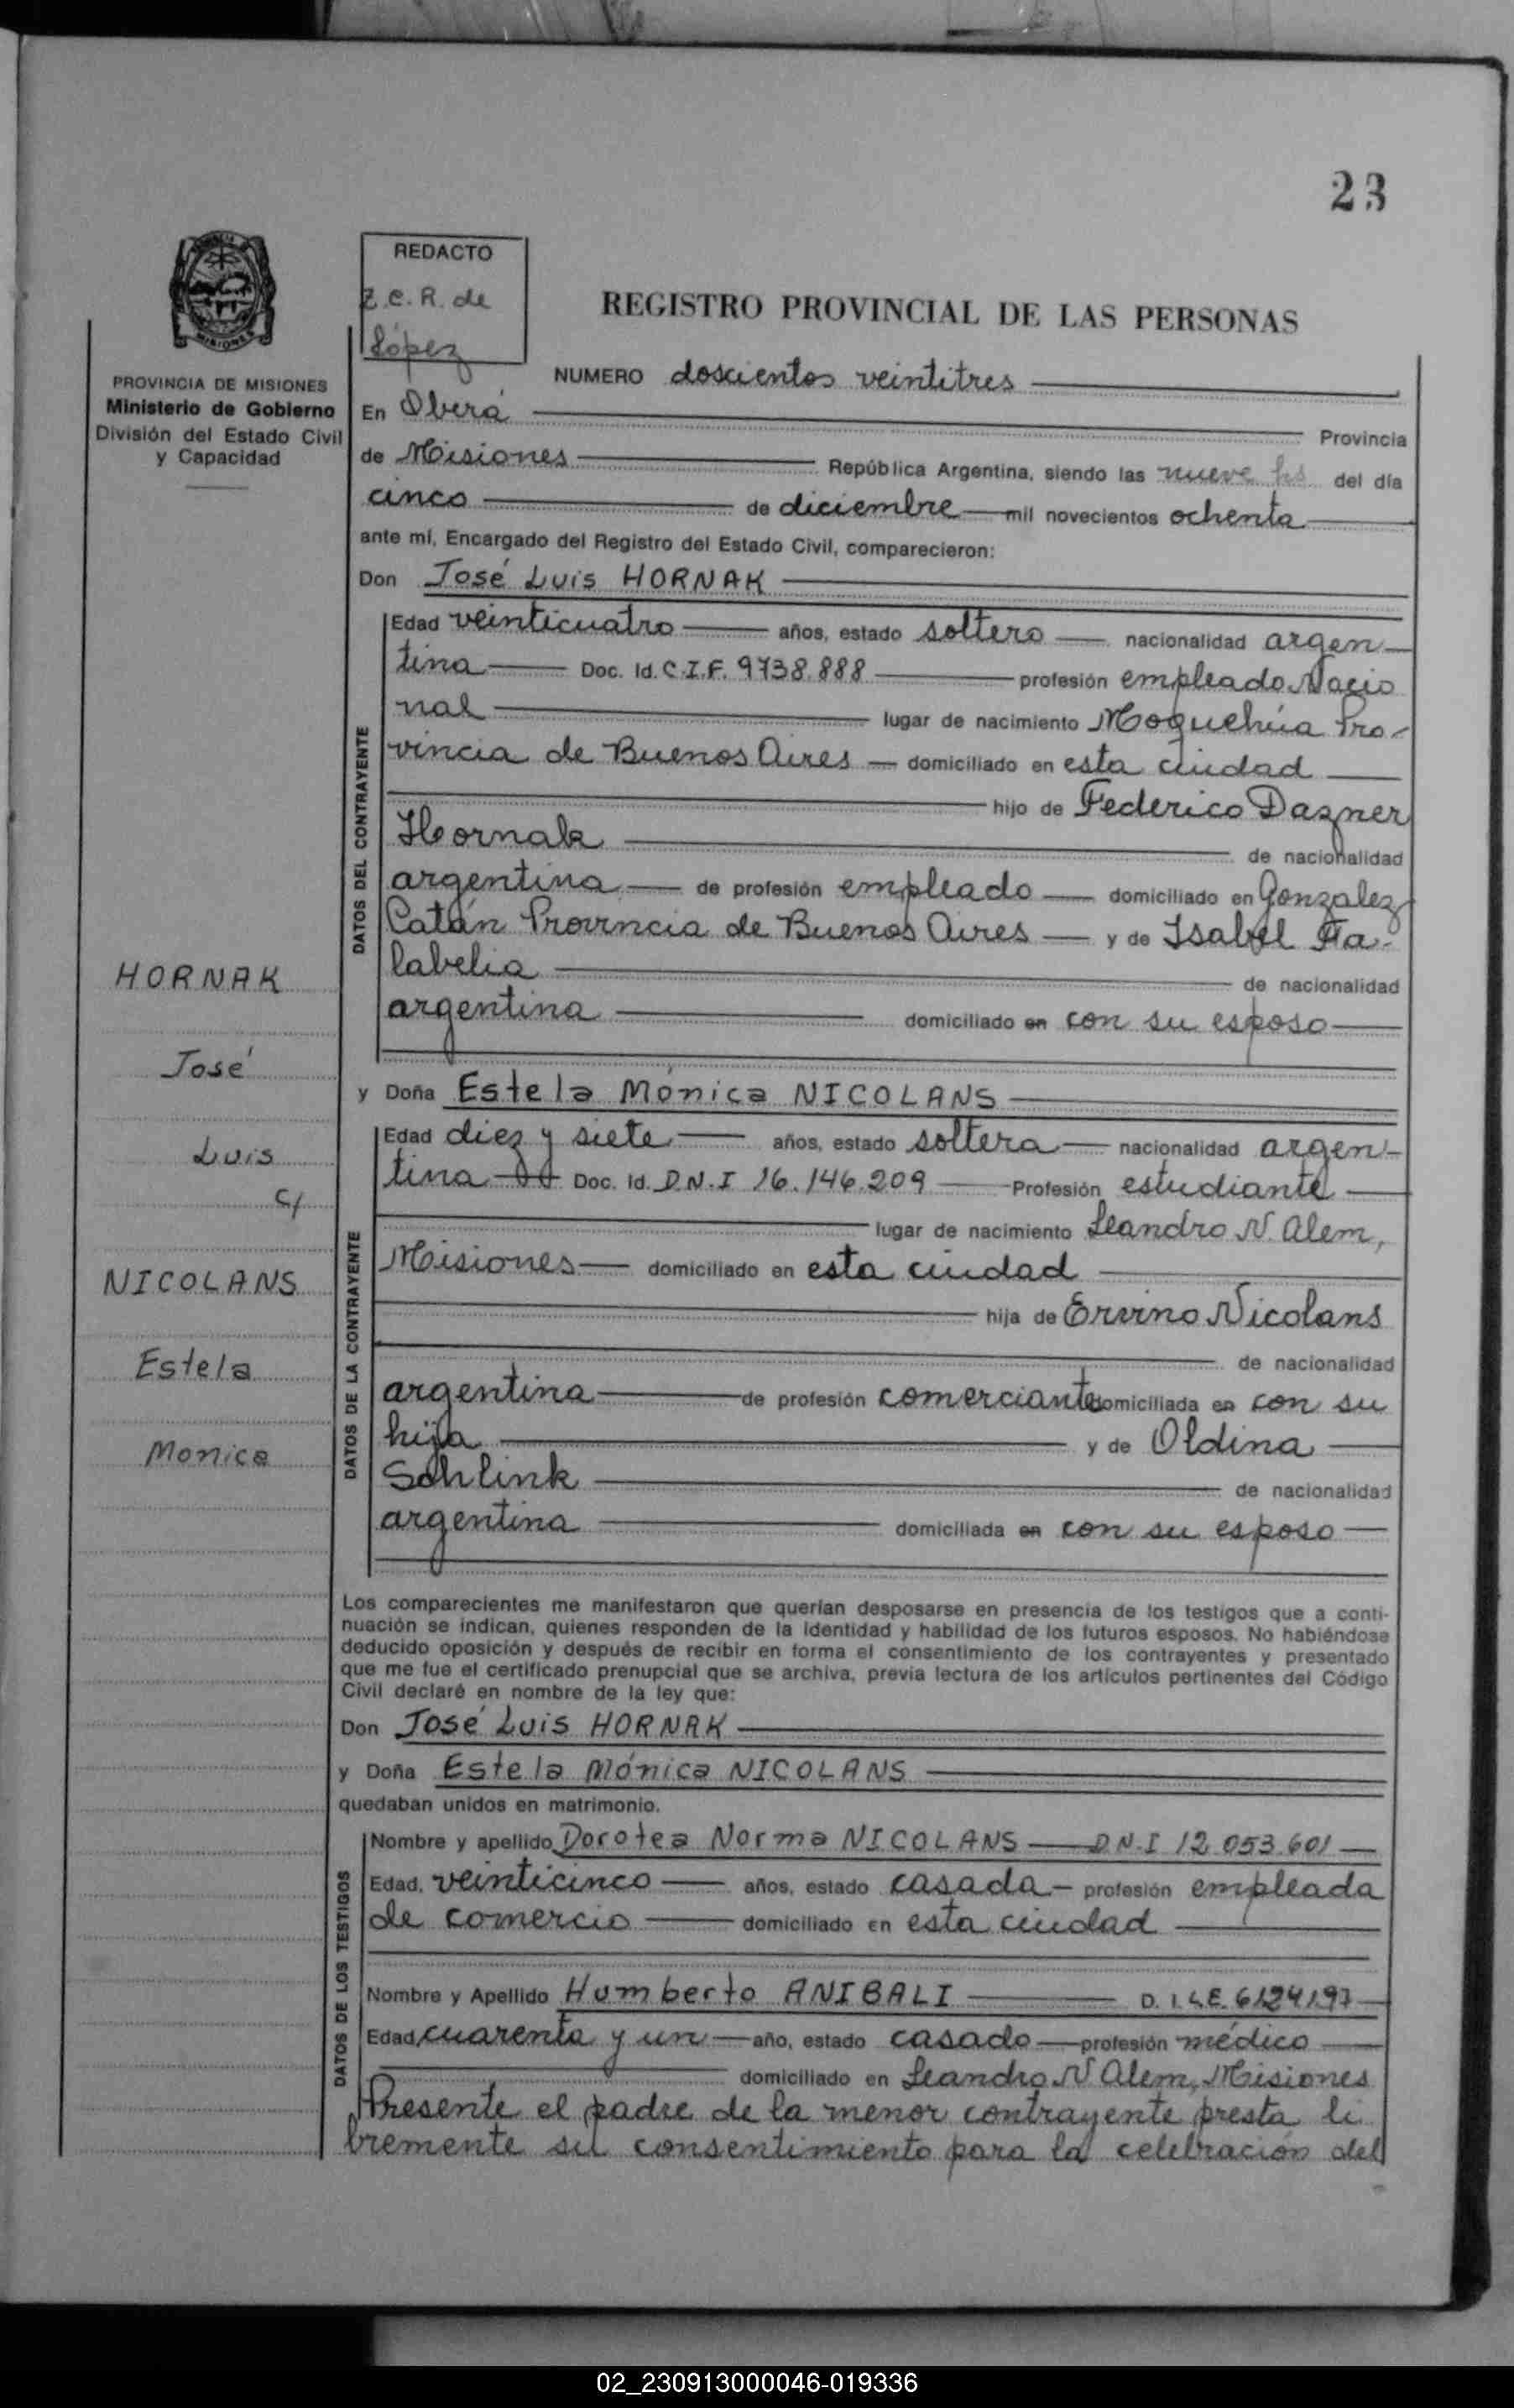 23
REDACTO
Z.C.R. de
López
REGISTRO PROVINCIAL DE LAS PERSONAS
PROVINCIA DE MISIONES
Ministerio de Gobierno
División del Estado Civil
y Capacidad
NUMERO doscientos veintitres
En Oberá Provincia
de Misiones República Argentina, siendo las nueve hs del día
cinco de diciembre mil novecientos ochenta
ante mí, Encargado del Registro del Estado Civil, comparecieron:
Don José Luis HORNAK
DATOS DEL CONTRAYENTE
Edad veinticuatro años, estado soltero nacionalidad argen-
tina Doc. Id. C.I.F. 9738.888 profesión empleado Nacio
nal lugar de nacimiento Moquehúa Pro-
vincia de Buenos Aires domiciliado en esta ciudad
hijo de Federico Dagner
Hornak de nacionalidad
argentina de profesión empleado domiciliado en Gonzalez
Catán Provincia de Buenos Aires y de Isabel
labelia de nacionalidad
argentina domiciliado en con su esposo
y Doña Estela Mónica NICOLANS
DATOS DE LA CONTRAYENTE
Edad diez y siete años, estado soltera nacionalidad argen-
tina Doc. Id. D.N.I 16.146.209 Profesión estudiante
lugar de nacimiento Leandro N. Alem,
Misiones domiciliado en esta ciudad
hija de Ervino Nicolans
de nacionalidad
argentina de profesión comerciante domiciliada en con su
hija y de Oldina
Schlink de nacionalidad
argentina domiciliada en con su esposo
HORNAK
José
Luis
c/
NICOLANS
Estela
Monica
Los comparecientes me manifestaron que querían desposarse en presencia de los testigos que a conti-
nuación se indican, quienes responden de la identidad y habilidad de los futuros esposos. No habiéndose
deducido oposición y después de recibir en forma el consentimiento de los contrayentes y presentado
que me fue el certificado prenupcial que se archiva, previa lectura de los artículos pertinentes del Código
Civil declaré en nombre de la ley que:
Don José Luis HORNAK
y Doña Estela Mónica NICOLANS
quedaban unidos en matrimonio.
DATOS DE LOS TESTIGOS
Nombre y apellido Dorotea Norma NICOLANS D.N.I 12.053.601
Edad, veinticinco años, estado casada profesión empleada
de comercio domiciliado en esta ciudad
Nombre y Apellido Humberto ANIBALI D. I. L.E. 6.124.197
Edad, cuarenta y un año, estado casado profesión médico
domiciliado en Leandro N Alem, Misiones
Presente el padre de la menor contrayente presta li
bremente su consentimiento para la celebración del
02_230913000046-019336